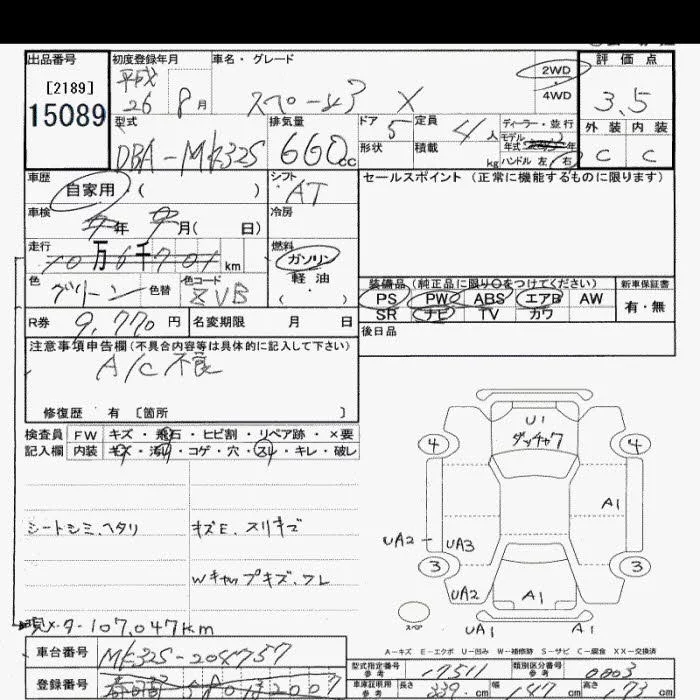 出品番号
[2189]
15089
初度登録年月
平成
26 8月
車名・グレード
スペーシア X
2WD
4WD
評価点
3.5
外装 内装
C C
型式
DBA-MK32S
排気量
660cc
ドア 5
形状
定員 4人
積載 kg
ディーラー・並行
モデル
年式 年
ハンドル 左・右
車歴
自家用 ( )
シフト
AT
セールスポイント (正常に機能するものに限ります)
車検
年 月( 日)
冷房
走行
10万6千701km
燃料
ガソリン
軽油
( ・ )
色
グリーン
色替
色コード
ZVB
装備品 (純正品に限り○をつけてください)
PS PW ABS エアB AW
SR ナビ TV カワ
新車保証書
有・無
R券 9,770円
名変期限 月 日
後日品
注意事項申告欄(不具合内容等は具体的に記入して下さい)
A/C不良
修復歴 有 〔箇所 〕
検査員 FW キズ・飛石・ヒビ割・リペア跡・×要
記入欄 内装 キズ・汚れ・コゲ・穴・スレ・キレ・破レ
シートシミ、ヘタリ
キズE、スリキズ
Wキャップキズ、ワレ
U1
4 4
A1
UA2 UA3
3 3
UA2 A1
スペア
UA1 A1
現メータ-107,047km
車台番号 MK32S-204757
登録番号
A-キズ E-エクボ U-凹み W-補修跡 S-サビ C-腐食 XX-交換済
型式指定番号
参考
17511
類別区分番号
参考
0003
車庫証明用
参考
長さ 339cm 幅 147cm 高さ 173cm